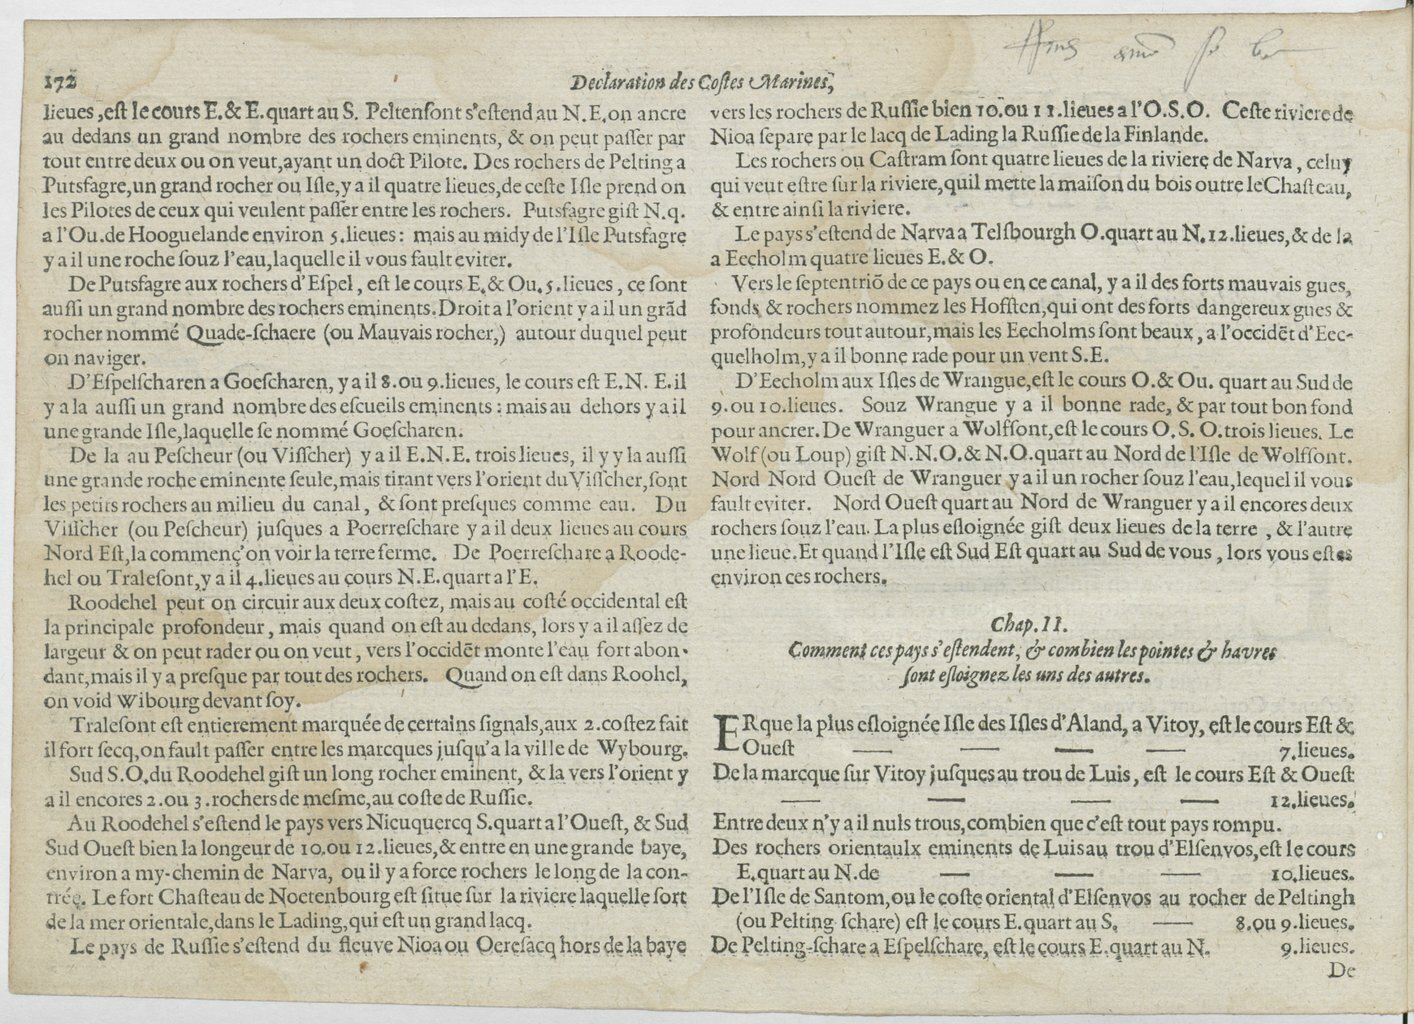 172
Declaration des Coſtes Marines,
lieues, eſt le cours E. & E. quart au S. Peltenſont s'eſtend au N. E. on ancre
au dedans un grand nombre des rochers eminents, & on peut paſſer par
tout entre deux ou on veut, ayant un doct Pilote. Des rochers de Pelting a
Putsfagre, un grand rocher ou Iſle, y a il quatre lieues, de ceſte Iſle prend on
les Pilotes de ceux qui veulent paſſer entre les rochers. Putsfagre giſt N.q.
a l'Ou. de Hooguelande environ 5. lieues: mais au midy de l'Iſle Putsfagre
y a il une roche ſouz l'eau, laquelle il vous fault eviter.
De Putsfagre aux rochers d'Eſpel, eſt le cours E. & Ou. 5. lieues, ce ſont
auſſi un grand nombre des rochers eminents. Droit a l'orient y a il un grãd
rocher nommé Quade-ſchaere (ou Mauvais rocher,) autour duquel peut
on naviger.
D'Eſpelſcharen a Goeſcharen, y a il 8. ou 9. lieues, le cours eſt E.N. E. il
y a la auſſi un grand nombre des eſcueils eminents: mais au dehors y a il
une grande Iſle, laquelle ſe nommé Goeſcharen.
De la au Peſcheur (ou Viſſcher) y a il E.N.E. trois lieues, il y y la auſſi
une grande roche eminente ſeule, mais tirant vers l'orient du Viſſcher, ſont
les petits rochers au milieu du canal, & ſont preſques comme eau. Du
Viſſcher (ou Peſcheur) juſques a Poerreſchare y a il deux lieues au cours
Nord Eſt, la commenç'on voir la terre ferme. De Poerreſchare a Roode-
hel ou Traleſont, y a il 4. lieues au cours N.E. quart a l'E.
Roodehel peut on circuir aux deux coſtez, mais au coſté occidental eſt
la principale profondeur, mais quand on eſt au dedans, lors y a il aſſez de
largeur & on peut rader ou on veut, vers l'occidẽt monte l'eau fort abon-
dant, mais il y a preſque par tout des rochers. Quand on eſt dans Roohel,
on void Wibourg devant ſoy.
Traleſont eſt entierement marquée de certains ſignals, aux 2. coſtez fait
il fort ſecq, on fault paſſer entre les marcques juſqu'a la ville de Wybourg.
Sud S.O. du Roodehel giſt un long rocher eminent, & la vers l'orient y
a il encores 2. ou 3. rochers de meſme, au coſte de Ruſſie.
Au Roodehel s'eſtend le pays vers Nicuquercq S. quart a l'Oueſt, & Sud
Sud Oueſt bien la longeur de 10. ou 12. lieues, & entre en une grande baye,
environ a my-chemin de Narva, ou il y a force rochers le long de la con-
trée. Le fort Chaſteau de Noctenbourg eſt ſitue ſur la riviere laquelle ſort
de la mer orientale, dans le Lading, qui eſt un grand lacq.
Le pays de Ruſſie s'eſtend du fleuve Nioa ou Oereſacq hors de la baye
vers les rochers de Ruſſie bien 10. ou 11. lieues a l'O.S.O. Ceſte riviere de
Nioa ſepare par le lacq de Lading la Ruſſie de la Finlande.
Les rochers ou Caſtram ſont quatre lieues de la riviere de Narva, celuy
qui veut eſtre ſur la riviere, quil mette la maiſon du bois outre le Chaſteau,
& entre ainſi la riviere.
Le pays s'eſtend de Narva a Telſbourgh O. quart au N. 12. lieues, & de la
a Eecholm quatre lieues E. & O.
Vers le ſeptentriõ de ce pays ou en ce canal, y a il des forts mauvais gues,
fonds & rochers nommez les Hofſten, qui ont des forts dangereux gues &
profondeurs tout autour, mais les Eecholms ſont beaux, a l'occidẽt d'Eec-
quelholm, y a il bonne rade pour un vent S.E.
D'Eecholm aux Iſles de Wrangue, eſt le cours O. & Ou. quart au Sud de
9. ou 10. lieues. Souz Wrangue y a il bonne rade, & par tout bon fond
pour ancrer. De Wranguer a Wolfſont, eſt le cours O. S. O. trois lieues. Le
Wolf (ou Loup) giſt N.N.O. & N.O. quart au Nord de l'Iſle de Wolfſont.
Nord Nord Oueſt de Wranguer y a il un rocher ſouz l'eau, lequel il vous
fault eviter. Nord Oueſt quart au Nord de Wranguer y a il encores deux
rochers ſouz l'eau. La plus eſloignée giſt deux lieues de la terre, & l'autre
une lieue. Et quand l'Iſle eſt Sud Eſt quart au Sud de vous, lors vous eſtes
environ ces rochers.
Chap. II.
Comment ces pays s'eſtendent, & combien les pointes & havres
ſont eſloignez les uns des autres.
ERque la plus eſloignée Iſle des Iſles d'Aland, a Vitoy, eſt le cours Eſt &
Oueſt — — — — 7. lieues.
De la marcque ſur Vitoy juſques au trou de Luis, eſt le cours Eſt & Oueſt
— — — — 12. lieues.
Entre deux n'y a il nuls trous, combien que c'eſt tout pays rompu.
Des rochers orientaulx eminents de Luis au trou d'Elſenvos, eſt le cours
E. quart au N. de — — — 10. lieues.
De l'Iſle de Santom, ou le coſte oriental d'Elſenvos au rocher de Peltingh
(ou Pelting-ſchare) eſt le cours E. quart au S. — 8. ou 9. lieues.
De Pelting-ſchare a Eſpelſchare, eſt le cours E. quart au N. 9. lieues.
De